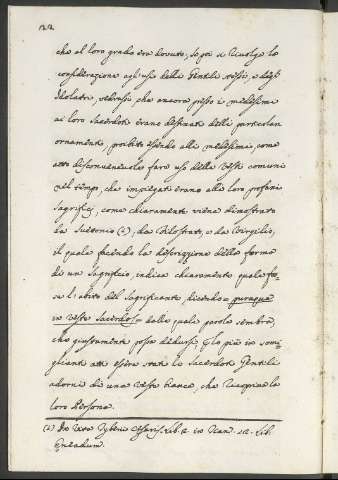 122
che al loro grado era dovuto, se poi si rivolge la
considerazione agl'usi delli Gentili stessi, e degl'
Idolatri, vedrassi che ancora presso i medesimi
ai loro Sacerdoti erano destinati delli particolari
ornamenti, proibito essendo alli medesimi, come
atto disconvenevole fare uso delle vesti comuni
nel tempo, che impiegati erano alli loro profani
sagrifizj, come chiaramente viene dimostrato
da Suetonio (2), da Filostrato, e da Virgilio,
il quale facendo la descrizione della forma
di un sagrificio indica chiaramente quale fos-
se l'abito del sagrificante dicendo = puraque
in veste sacerdos = dalle quali parole sembra,
che giustamente possa dedursi che più in
atti essere stati li Sacerdoti Gentili
adorni di una veste bianca, che ricopriva la
loro Persona.
(2) In Vita Tyberii Cesaris. Lib. 2. in 12. Lib.
Eneadum.